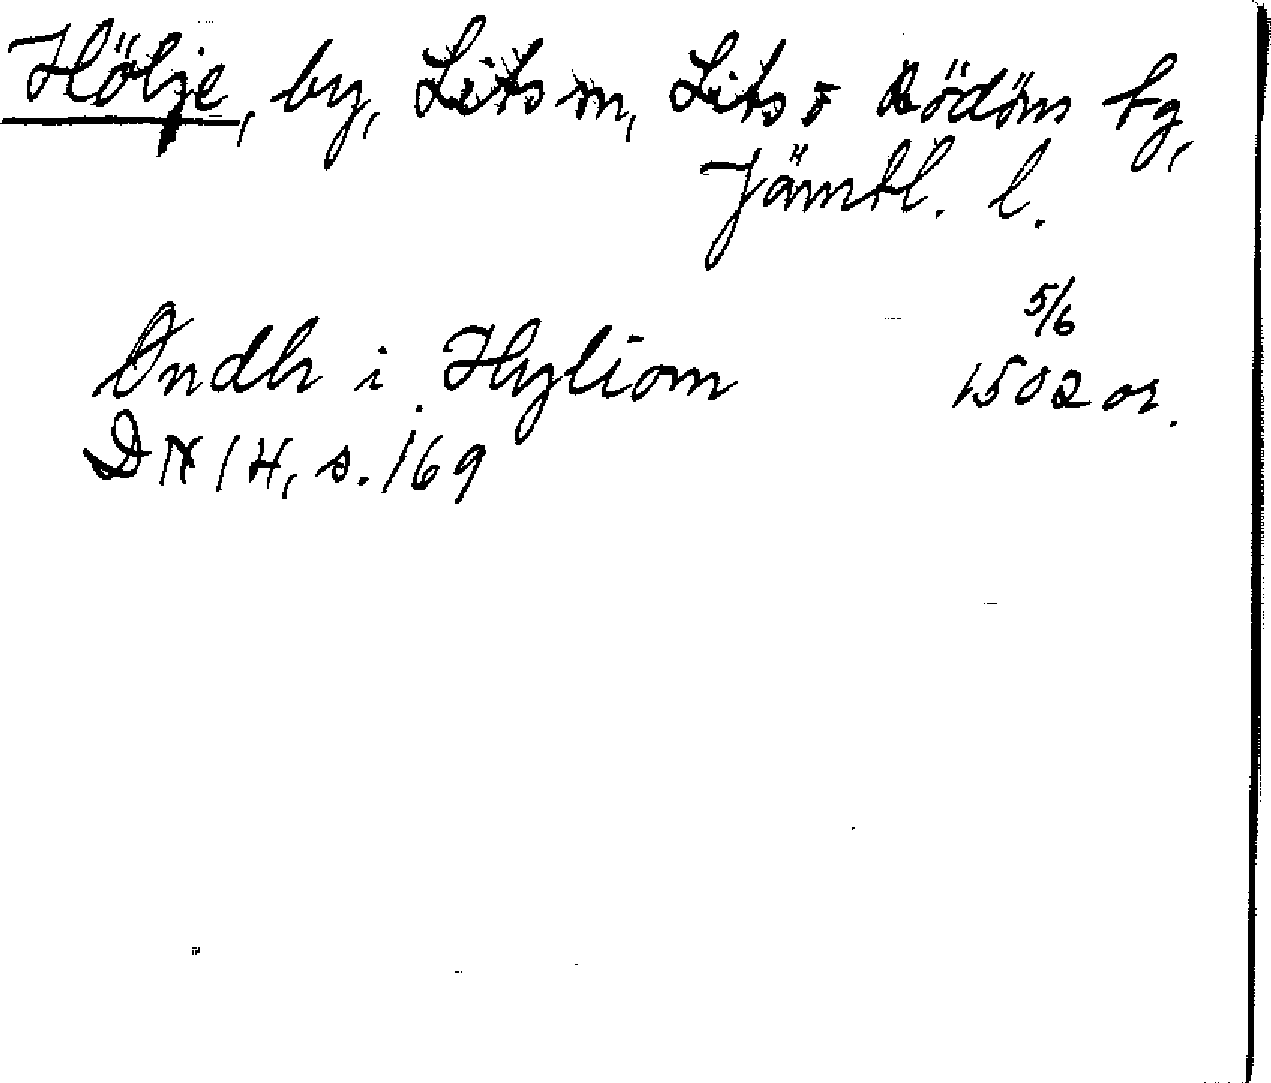 Hölje, by, Lits sn, Lits o Rödöns tg,
Jämtl. l.
Ondh i Hyliom 5/6 1502 or.
DN 14, s. 169